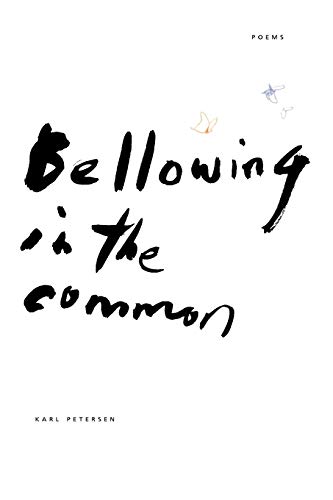 POEMS
Bellowing
in the
common
KARL PETERSEN